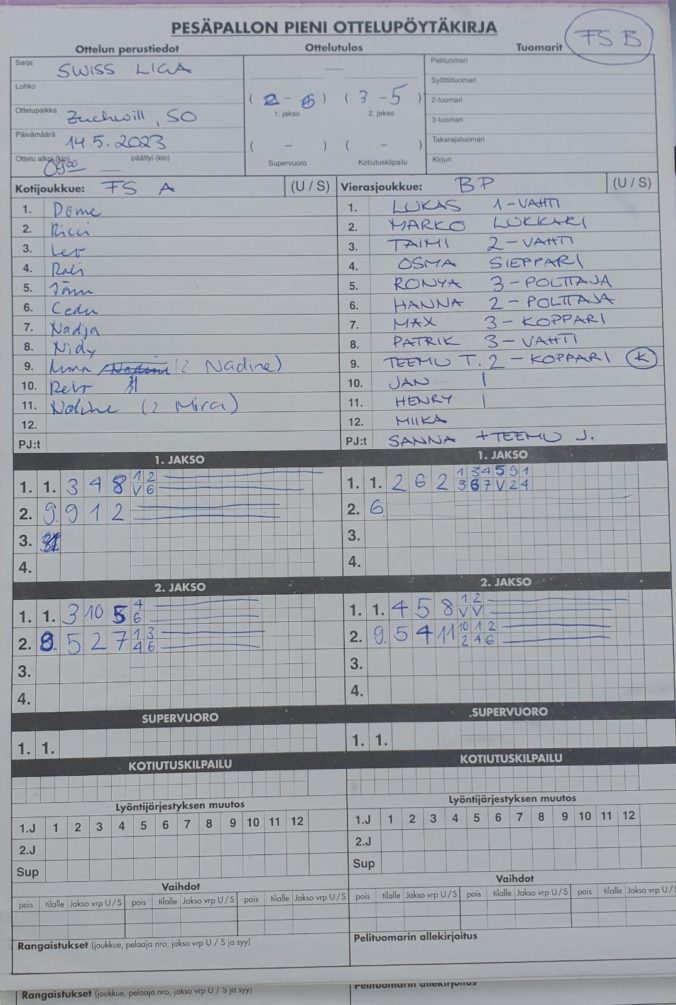 PESÄPALLON PIENI OTTELUPÖYTÄKIRJA
FS B
Ottelun perustiedot Ottelutulos Tuomarit
Sarja SWISS LIGA Pelituomari
Lohko Syöttötuomari
Ottelupaikka Zuchwill, SO ( 2 - 6 ) ( 3 - 5 ) 2-tuomari
1. jakso 2. jakso 3-tuomari
Päivämäärä 14.5.2023 ( - ) ( - ) Takarajatuomari
Ottelu alkoi (klo) päättyi (klo) Supervuoro Kotiutuskilpailu Kirjuri
Kotijoukkue: FS A (U / S) Vierasjoukkue: BP (U / S)
1. Dome 1. LUKAS 1-VAHTI
2. Ricci 2. MARKO LUKKARI
3. 3. TAIMI 2-VAHTI
4. 4. OSMA SIEPPARI
5. 5. RONYA 3-POLTTAJA
6. 6. HANNA 2-POLTTAJA
7. Nadja 7. MAX 3-KOPPARI
8. Nidy 8. PATRIK 3-VAHTI
9. (2 Nadine) 9. TEEMU T. 2-KOPPARI K
10. 10. JAN 1
11. (2 Mira) 11. HENRY 1
12. 12. MIIKA
PJ:t PJ:t SANNA + TEEMU J.
1. JAKSO 1. JAKSO
1. 1. 3 4 8 1 2 1. 1. 2 6 2 1 3 4 5 9 1
V 6 3 6 7 V 2 4
2. 9 9 1 2 2. 6
3. 3.
4. 4.
2. JAKSO 2. JAKSO
1. 1. 3 10 5 4 1. 1. 4 5 8 1 2
6 V V
2. 9. 5 2 7 1 3 2. 9. 5 4 11 10 1 2
4 6 2 4 6
3. 3.
4. 4.
SUPERVUORO SUPERVUORO
1. 1. 1. 1.
KOTIUTUSKILPAILU KOTIUTUSKILPAILU
Lyöntijärjestyksen muutos Lyöntijärjestyksen muutos
1.J 1 2 3 4 5 6 7 8 9 10 11 12 1.J 1 2 3 4 5 6 7 8 9 10 11 12
2.J 2.J
Sup Sup
Vaihdot Vaihdot
pois tilalle Jakso vrp U / S pois tilalle Jakso vrp U / S pois tilalle Jakso vrp U / S pois tilalle Jakso vrp U / S pois tilalle Jakso vrp U / S pois tilalle Jakso vrp U / S
Rangaistukset (joukkue, pelaaja nro, jakso vrp U / S ja syy) Pelituomarin allekirjoitus
Rangaistukset (joukkue, pelaaja nro, jakso vrp U / S ja syy) Pelituomarin allekirjoitus